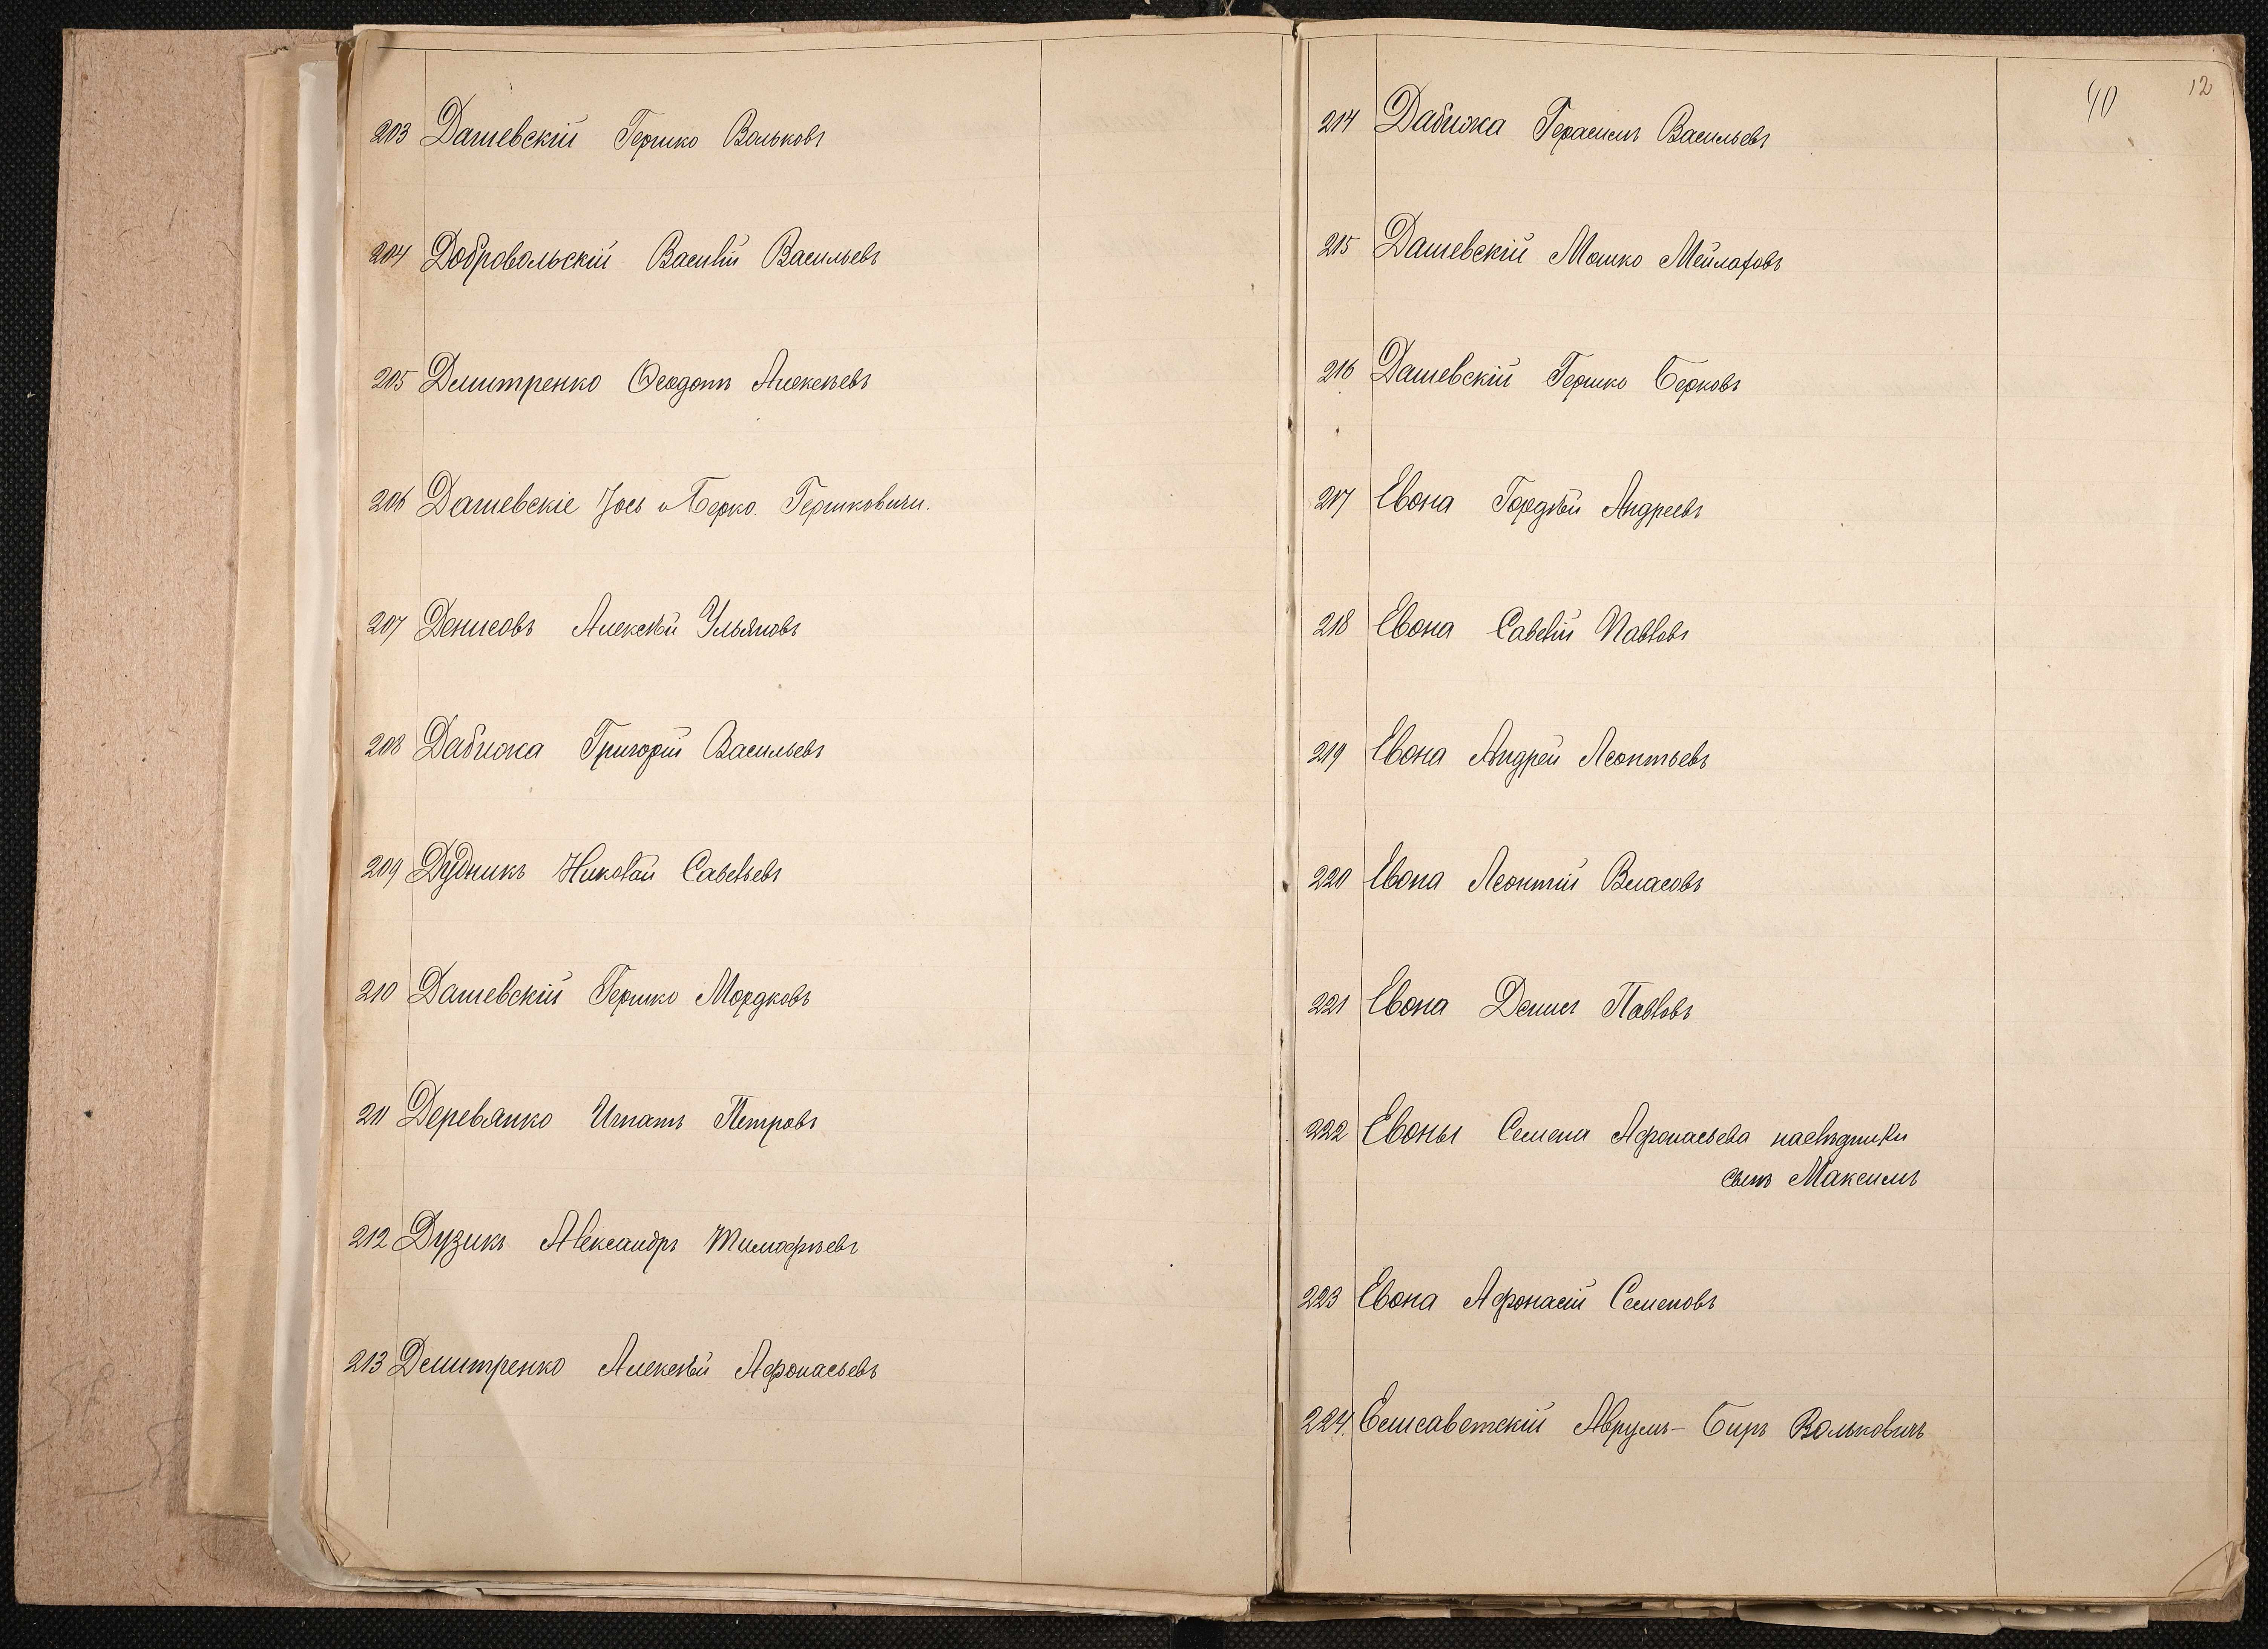 203 Дашевскій Гершко Вольковъ
204 Добровольскій Василій Васильевъ
205 Дмитренко Ѳеодотъ Алексѣевъ
206 Дашевскіе Іось и Берко Гершковичи.
207 Денисовъ Алексѣй Ульяновъ
208 Дабижа Григорій Васильевъ
209 Дудникъ Николай Савельевъ
210 Дашевскій Гершко Мордковъ
211 Деревянко Игнатъ Петровъ
212 Дузикъ Александръ Тимофѣевъ
213 Дмитренко Алексѣй Афонасьевъ
40 12
214 Дабижа Герасимъ Васильевъ
215 Дашевскій Мошко Мейлаховъ
216 Дашевскій Гершко Берковъ
217 Евона Гордѣй Андреевъ
218 Евона Савелій Павловъ
219 Евона Андрей Леонтьевъ
220 Евона Леонтій Власовъ
221 Евона Денисъ Павловъ
222 Евоны Семена Афонасьева наслѣдники
сынъ Максимъ
223 Евона Афонасій Семеновъ
224. Елисаветскій Аврумъ-Биръ Вольковичъ